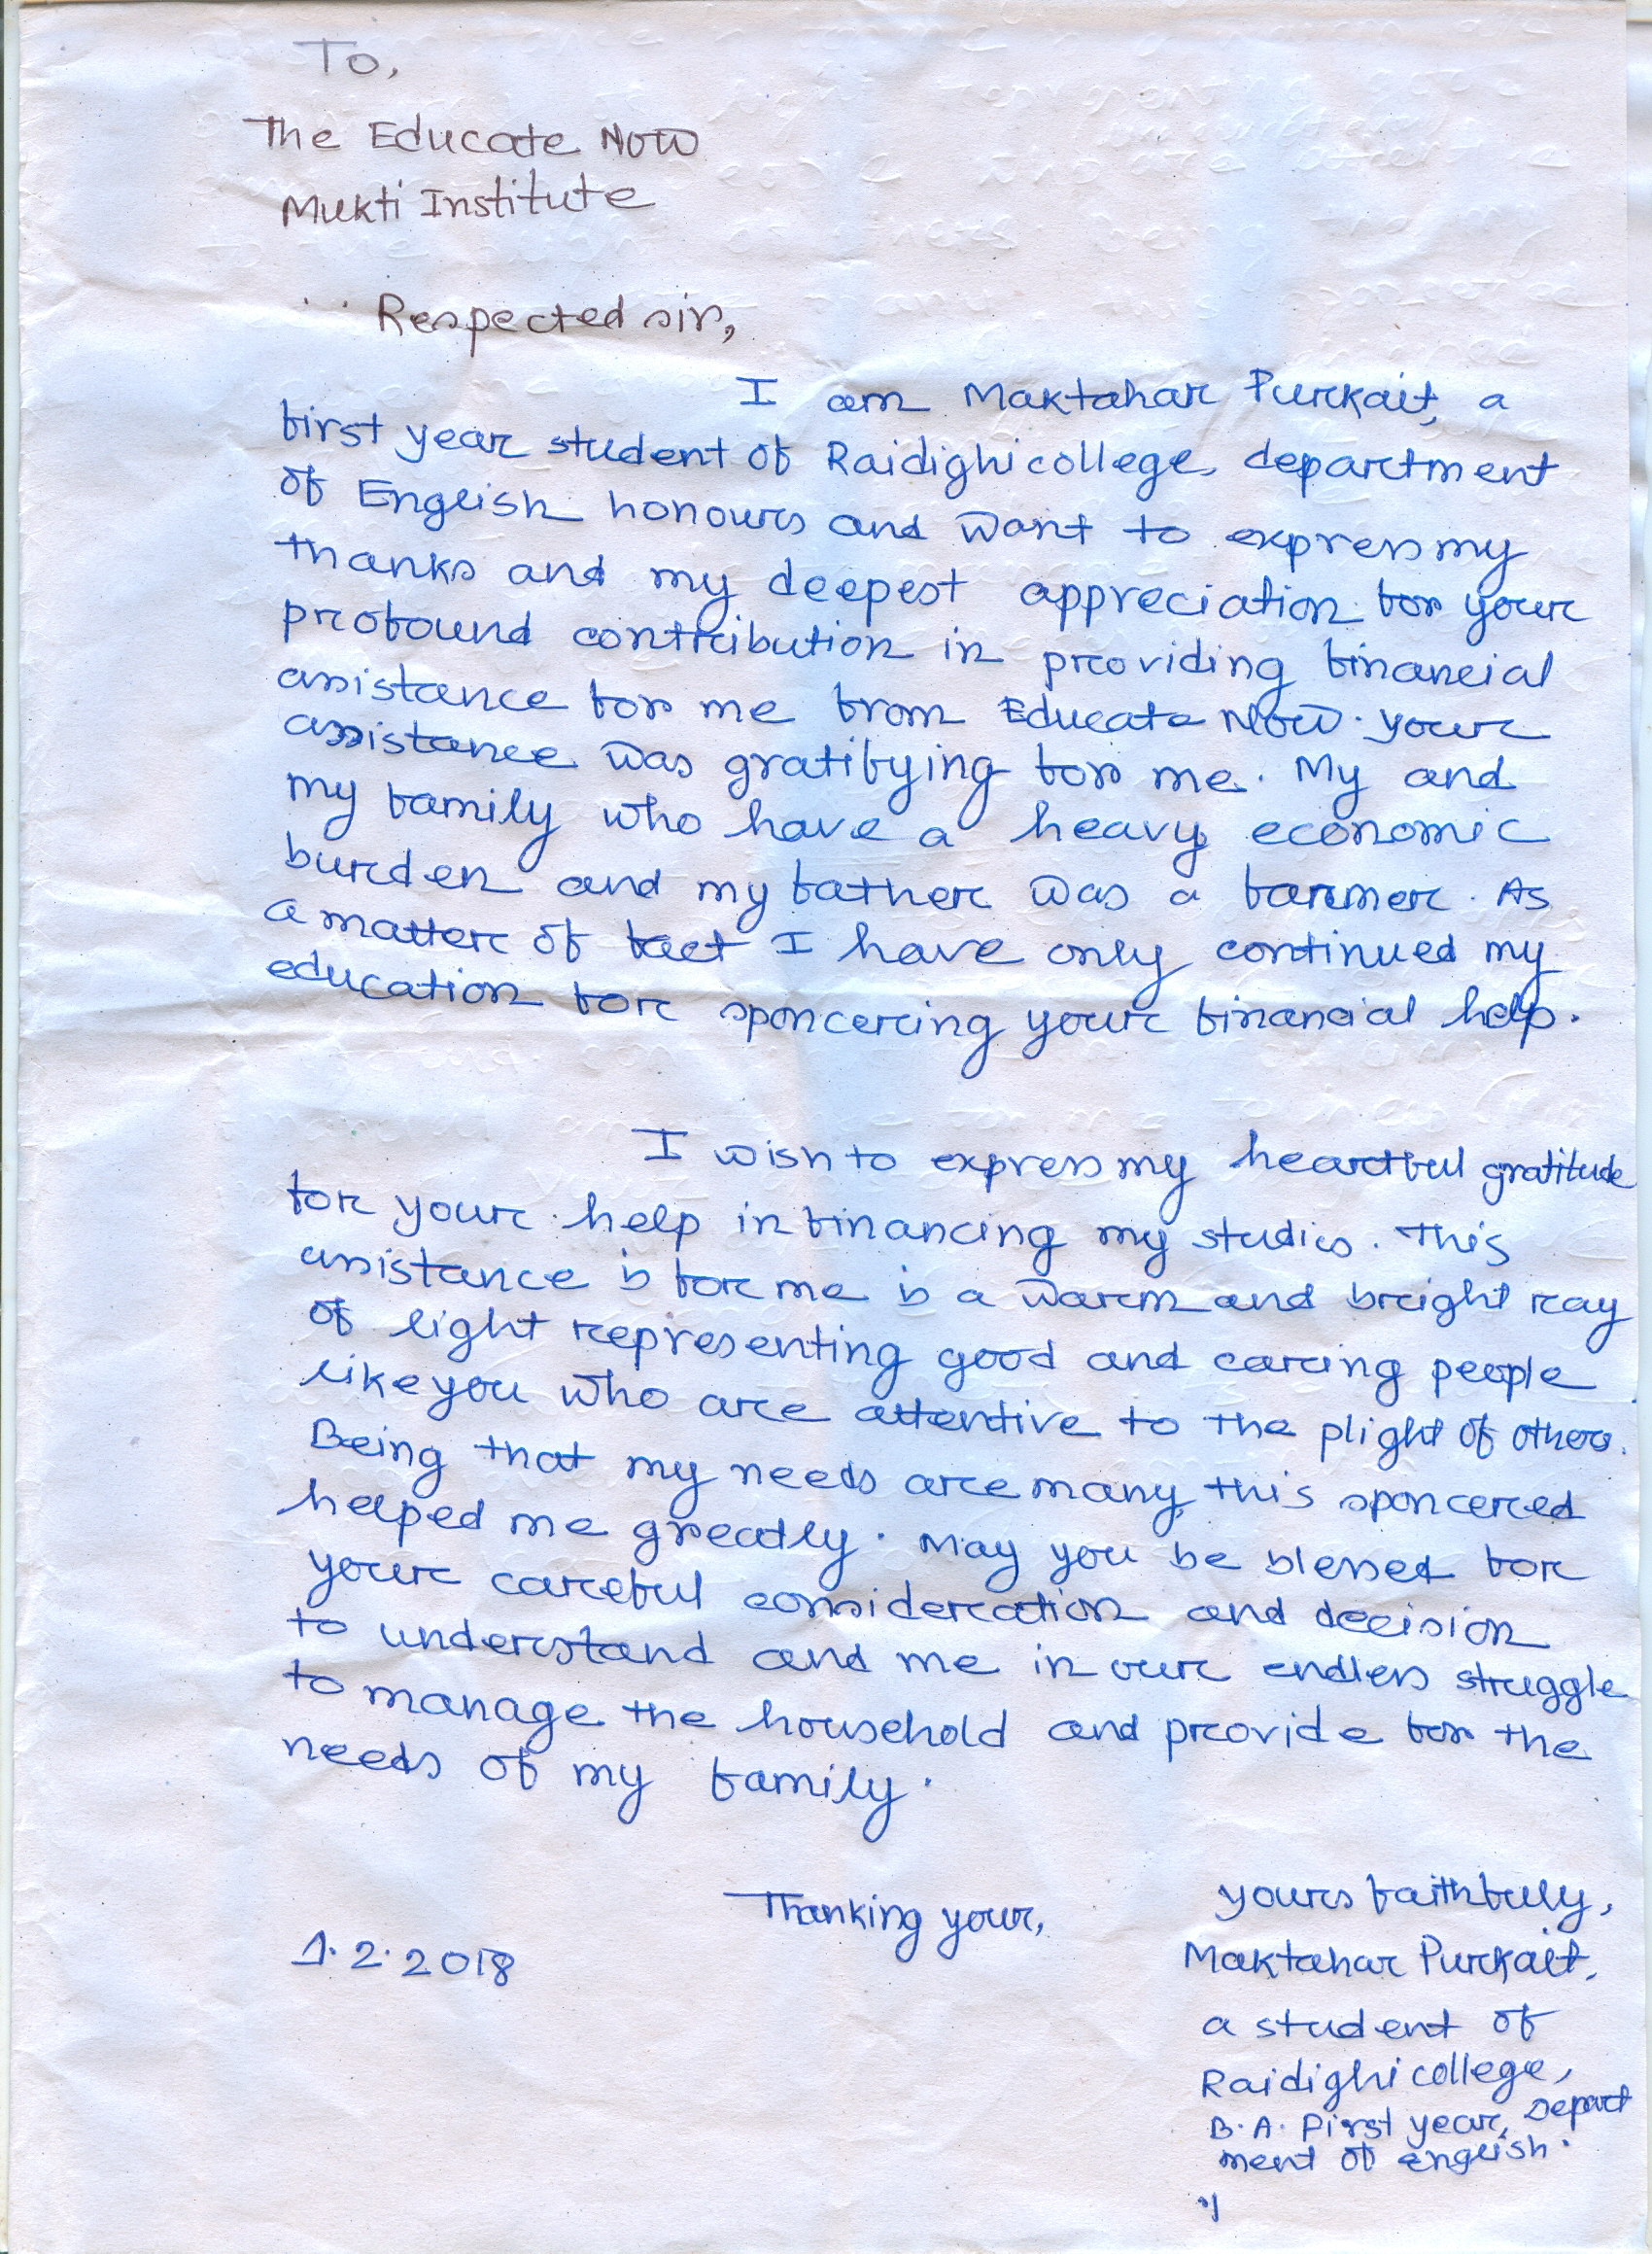 To,
The Educate Now
Mukti Institute
Respected sir,
I am Maktahar Purkait, a
first year student of Raidighi college, department
of English honours and want to express my
thanks and my deepest appreciation for your
profound contribution in providing financial
assistance for me from Educate Now. your
assistance was gratifying for me. My and
my family who have a heavy economic
burden and my father was a farmer. As
a matter of fact I have only continued my
education for sponcering your financial help.
I wish to express my heartful gratitude
for your help in financing my studies. This
assistance is for me is a warm and bright ray
of light representing good and caring people
like you who are attentive to the plight of others.
Being that my needs are many, this sponcered
helped me greatly. May you be blessed for
your careful consideration and decision
to understand and me in our endless struggle
to manage the household and provide for the
needs of my family.
Thanking your,
yours faithfully,
1.2.2018
Maktahar Purkait.
a student of
Raidighi college,
B.A. First year, Depart
ment of english.